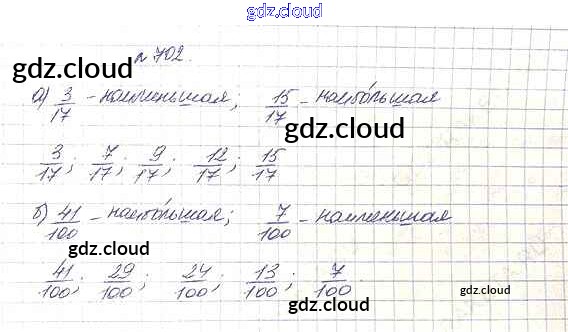 gdz.cloud
№ 702.
gdz.cloud
а) 3/17 - наименьшая; 15/17 - наибо́льшая
gdz.cloud
3/17; 7/17; 9/17; 12/17; 15/17
б) 41/100 - наибо́льшая; 7/100 - наименьшая
gdz.cloud
41/100; 29/100; 24/100; 13/100; 7/100
gdz.cloud
gdz.cloud